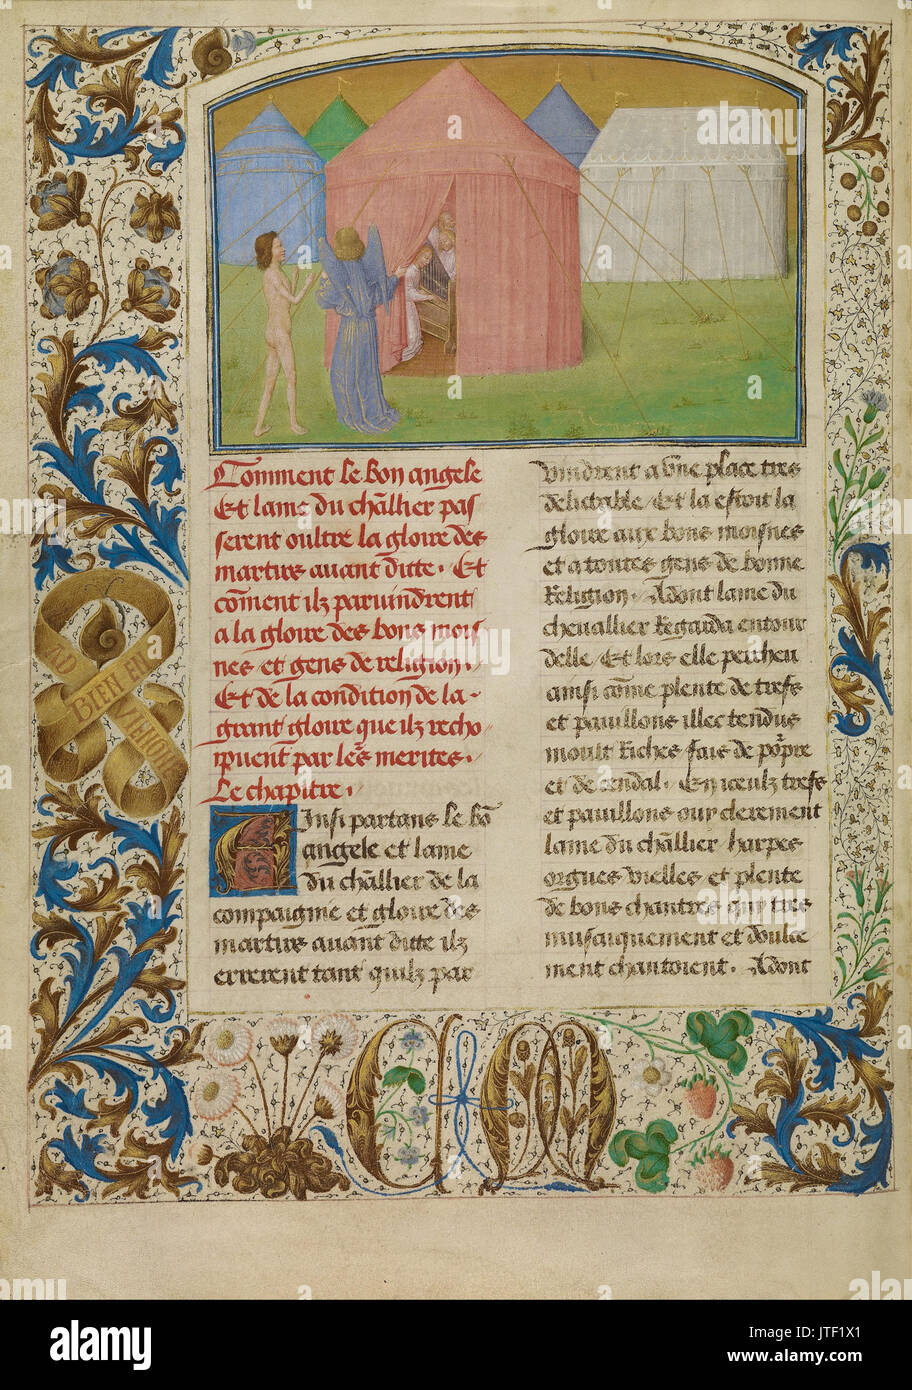 Comment le bon angele
Et lame du chl̄lier pas
serent oultre la gloire des
martirs auant ditte. Et
cōment ilz paruindrent
a la gloire des bons mois
nes et gens de religion.
Et de la condition de la
grant gloire que ilz recho
ipuent par les merites.
Le chapitre.
Ainsi partans le bō
angele et lame
du chl̄lier de la
compaignie et gloire des
martirs auant ditte ilz
errerent tant quilz par
uindrent a vne place tres
delictable / Et la estoit la
gloire aux bons moisnes
et a toutes gens de bonne
Religion. Adont lame du
cheuallier Regarda entour
delle / Et lors elle percheu
ainsi cōme plente de trefs
et pauillons illec tendus
moult Riches fais de po᷑pre
et de cendal. En iceulz trefs
et pauillons ouy clerement
lame du chl̄lier / harpes
orgues vielles et plente
de bons chantres quy tres
musaiquement et doulce
ment chantoient. Adont
BIEN EN
AD
VIENG
CM
alamy
alamy stock photo
JTF1X1
www.alamy.com